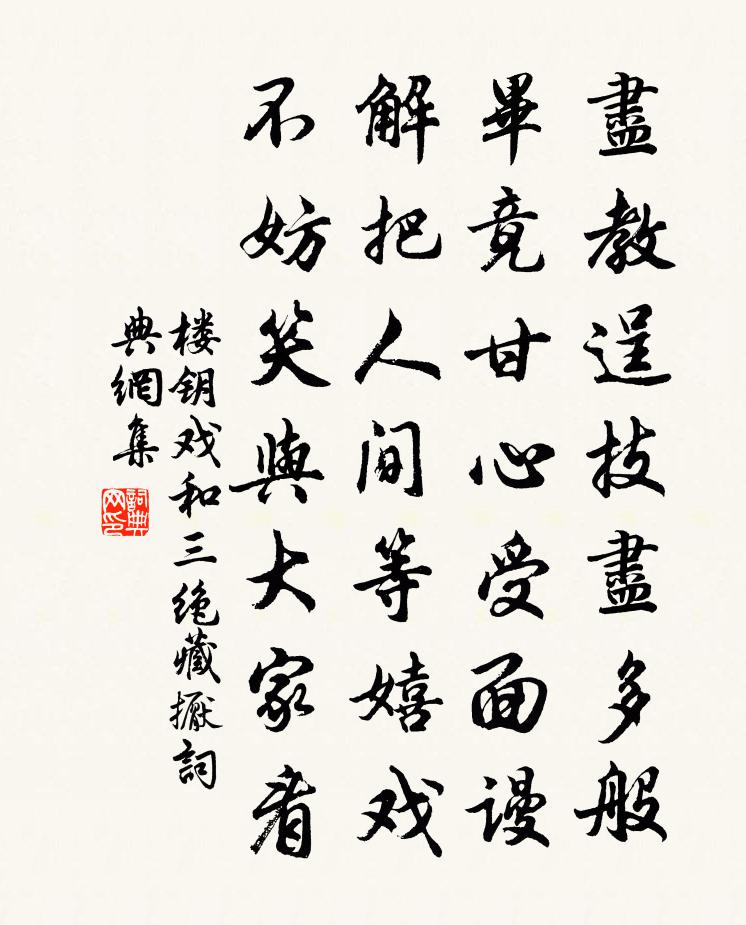 盡教逞技盡多般
畢竟甘心受面谩
解把人间等嬉戏
不妨笑與大家看
楼钥戏和三绝藏擫詞
典網集
詞典网印